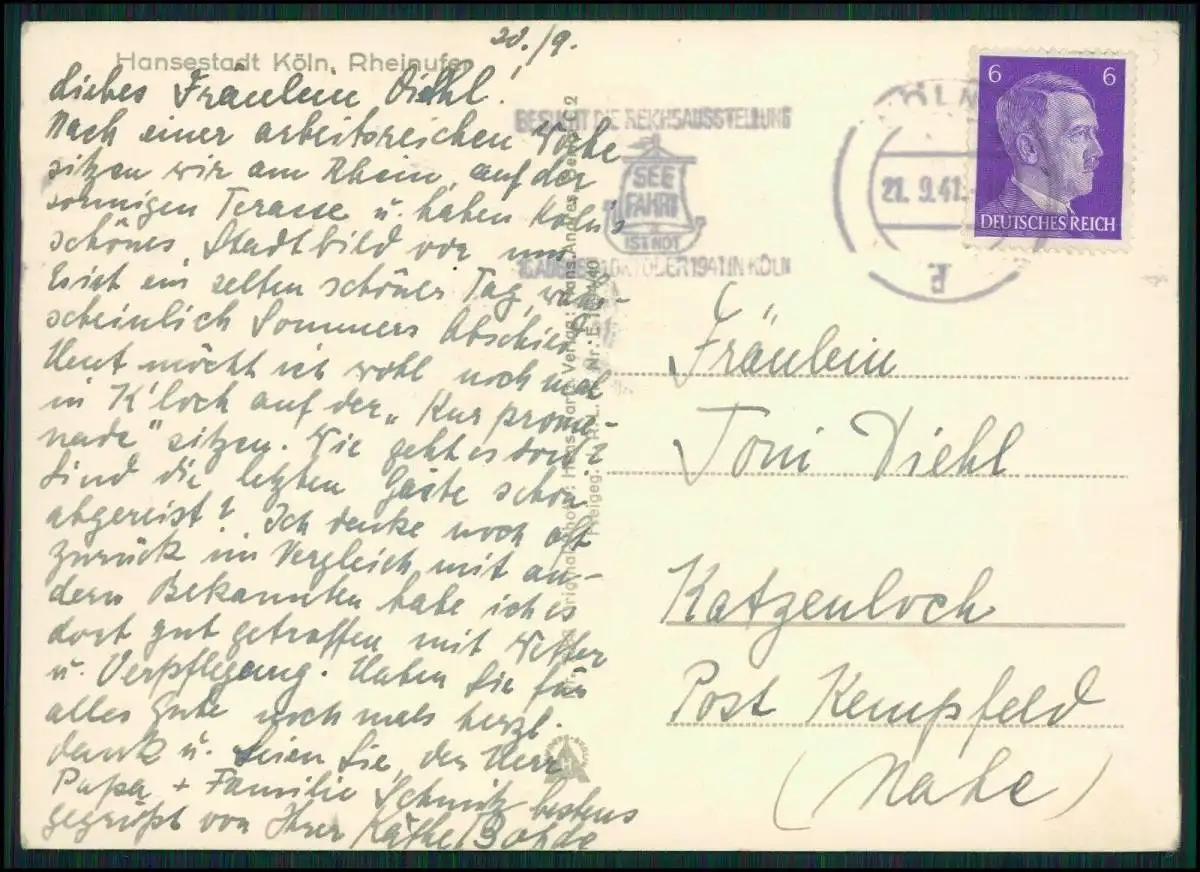 20./9.
Hansestadt Köln, Rheinufer
Liebes Fräulein Diehl!
Nach einer arbeitsreichen Woche
sitzen wir am Rhein, auf der
sonnigen Terasse u. haben Köln's
schönes Stadtbild vor uns.
Es ist ein selten schöner Tag, wahr-
scheinlich Sommers Abschied.
Heut möcht ich wohl noch mal
in K'loch auf der „Kurprome-
nade" sitzen. Wie geht es dort?
Sind die letzten Gäste schon
abgereist? Ich denke noch oft
zurück im Vergleich mit an-
dern Bekannten habe ich es
dort gut getroffen mit Wetter
u. Verpflegung. Haben Sie für
alles Gute nochmals herzl.
dank u. seien Sie, der Herr
Papa + Familie Schmitz bestens
gegrüßt von Ihrer Käthe Bohde
BESUCHT DIE REICHSAUSSTELLUNG
SEE
FAHRT
IST NOT
OKTOBER 1941 IN KÖLN
KÖLN
21. 9.41.
6 6
DEUTSCHES REICH
Fräulein
Toni Diehl
Katzenloch
Post Kempfeld
(Nahe)